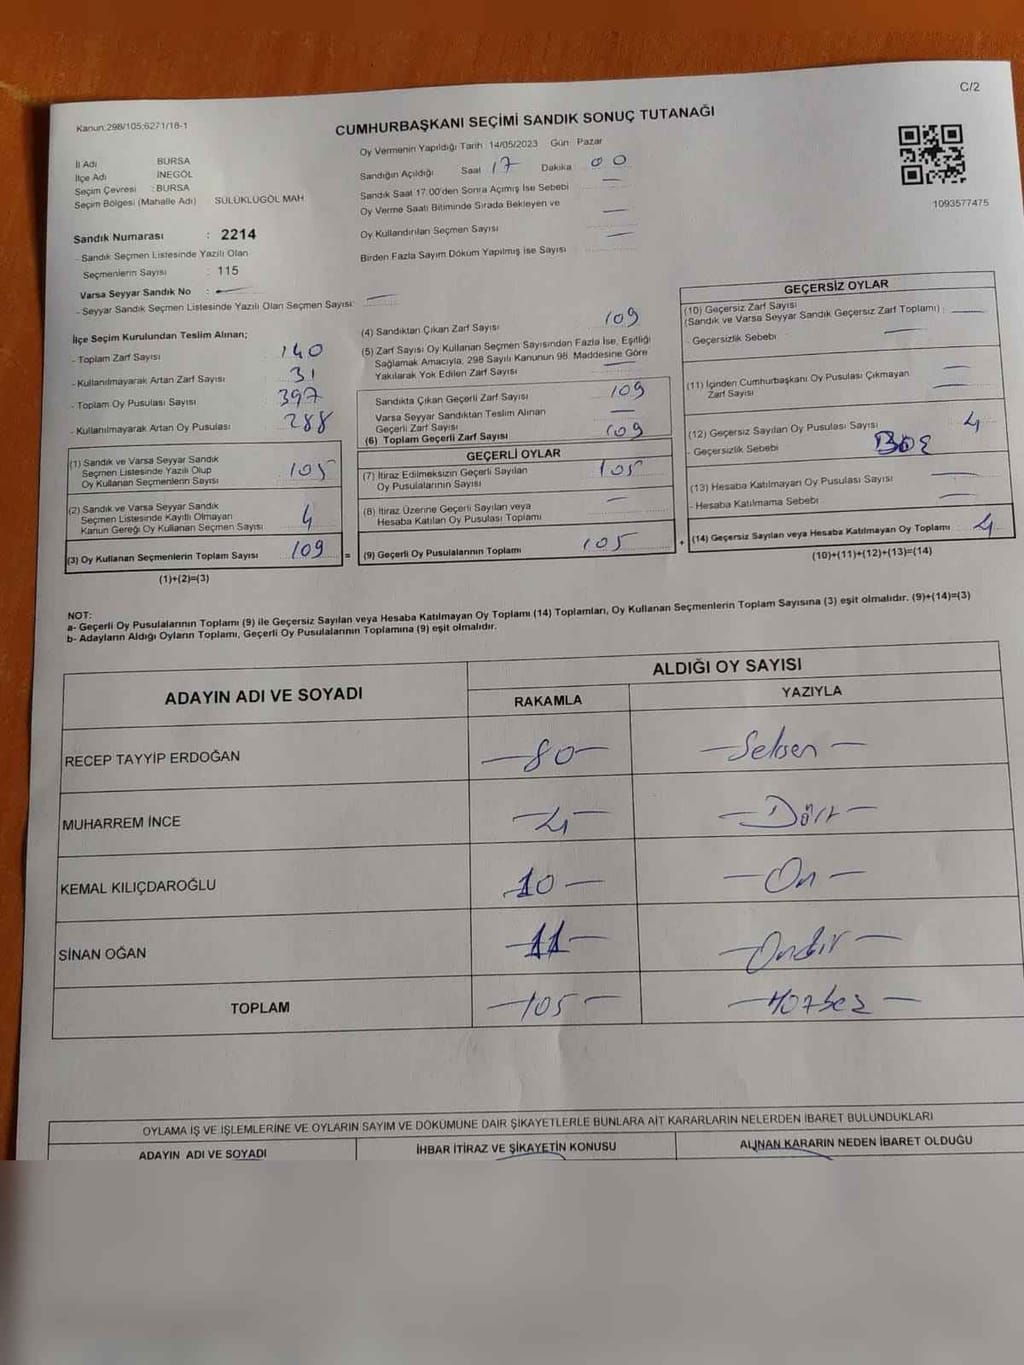 C/2
Kanun:298/105;6271/18-1
CUMHURBAŞKANI SEÇİMİ SANDIK SONUÇ TUTANAĞI
İl Adı BURSA
İlçe Adı İNEGÖL
Seçim Çevresi : BURSA
Seçim Bölgesi (Mahalle Adı) SÜLÜKLÜGÖL MAH
Sandık Numarası : 2214
- Sandık Seçmen Listesinde Yazılı Olan
Seçmenlerin Sayısı : 115
Varsa Seyyar Sandık No : —
- Seyyar Sandık Seçmen Listesinde Yazılı Olan Seçmen Sayısı: —
Oy Vermenin Yapıldığı Tarih : 14/05/2023 Gün : Pazar
Sandığın Açıldığı Saat 17 Dakika 00
Sandık Saat 17:00'den Sonra Açımış İse Sebebi —
Oy Verme Saati Bitiminde Sırada Bekleyen ve
Oy Kullandırılan Seçmen Sayısı —
Birden Fazla Sayım Döküm Yapılmış İse Sayısı —
1093577475
İlçe Seçim Kurulundan Teslim Alınan;
- Toplam Zarf Sayısı 140
- Kullanılmayarak Artan Zarf Sayısı 31
- Toplam Oy Pusulası Sayısı 397
- Kullanılmayarak Artan Oy Pusulası 288
(1) Sandık ve Varsa Seyyar Sandık
Seçmen Listesinde Yazılı Olup
Oy Kullanan Seçmenlerin Sayısı 105
(2) Sandık ve Varsa Seyyar Sandık
Seçmen Listesinde Kayıtlı Olmayan
Kanun Gereği Oy Kullanan Seçmen Sayısı 4
(3) Oy Kullanan Seçmenlerin Toplam Sayısı 109 =
(1)+(2)=(3)
(4) Sandıktan Çıkan Zarf Sayısı 109
(5) Zarf Sayısı Oy Kullanan Seçmen Sayısından Fazla İse, Eşitliği
Sağlamak Amacıyla, 298 Sayılı Kanunun 98. Maddesine Göre
Yakılarak Yok Edilen Zarf Sayısı —
Sandıkta Çıkan Geçerli Zarf Sayısı 109
Varsa Seyyar Sandıktan Teslim Alınan
Geçerli Zarf Sayısı —
(6) Toplam Geçerli Zarf Sayısı 109
GEÇERLİ OYLAR
(7) İtiraz Edilmeksizin Geçerli Sayılan
Oy Pusulalarının Sayısı 105
(8) İtiraz Üzerine Geçerli Sayılan veya
Hesaba Katılan Oy Pusulası Toplamı —
(9) Geçerli Oy Pusulalarının Toplamı 105 +
GEÇERSİZ OYLAR
(10) Geçersiz Zarf Sayısı
(Sandık ve Varsa Seyyar Sandık Geçersiz Zarf Toplamı) : —
- Geçersizlik Sebebi —
(11) İçinden Cumhurbaşkanı Oy Pusulası Çıkmayan
Zarf Sayısı —
(12) Geçersiz Sayılan Oy Pusulası Sayısı 4
- Geçersizlik Sebebi
(13) Hesaba Katılmayan Oy Pusulası Sayısı —
- Hesaba Katılmama Sebebi —
(14) Geçersiz Sayılan veya Hesaba Katılmayan Oy Toplamı 4
(10)+(11)+(12)+(13)=(14)
NOT:
a- Geçerli Oy Pusulalarının Toplamı (9) ile Geçersiz Sayılan veya Hesaba Katılmayan Oy Toplamı (14) Toplamları, Oy Kullanan Seçmenlerin Toplam Sayısına (3) eşit olmalıdır. (9)+(14)=(3)
b- Adayların Aldığı Oyların Toplamı, Geçerli Oy Pusulalarının Toplamına (9) eşit olmalıdır.
ADAYIN ADI VE SOYADI ALDIĞI OY SAYISI
RAKAMLA YAZIYLA
RECEP TAYYİP ERDOĞAN —80— —Seksen—
MUHARREM İNCE —4— —Dört—
KEMAL KILIÇDAROĞLU 10— —On—
SİNAN OĞAN —11— —Onbir—
TOPLAM —105— —Yüzbeş—
OYLAMA İŞ VE İŞLEMLERİNE VE OYLARIN SAYIM VE DÖKÜMÜNE DAİR ŞİKAYETLERLE BUNLARA AİT KARARLARIN NELERDEN İBARET BULUNDUKLARI
ADAYIN ADI VE SOYADI İHBAR İTİRAZ VE ŞİKAYETİN KONUSU ALINAN KARARIN NEDEN İBARET OLDUĞU